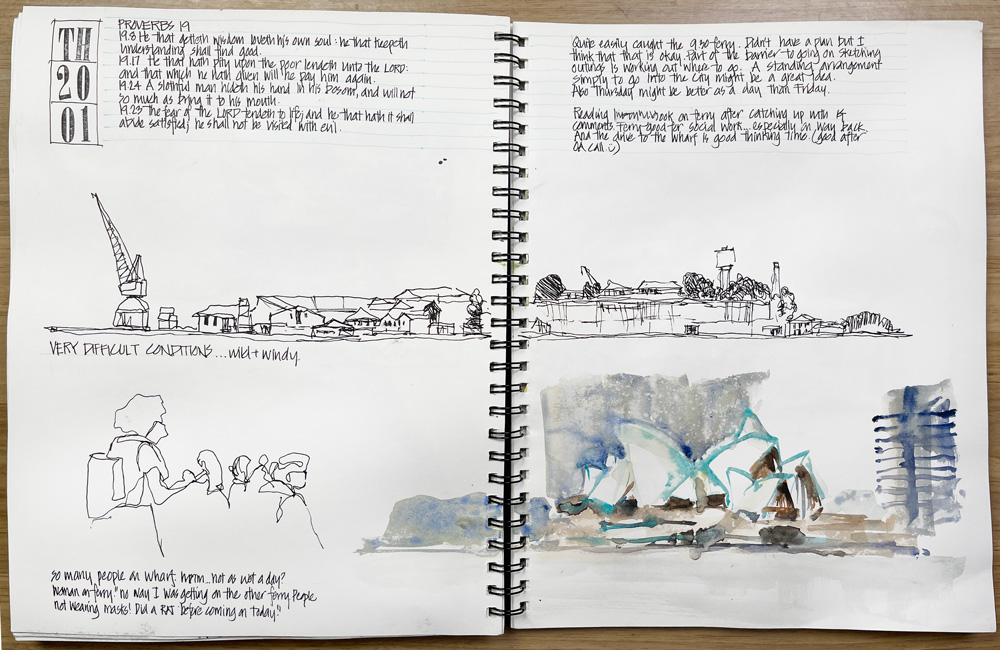 TH
20
01
PROVERBS 19
19.8 He that getteth wisdom loveth his own soul: he that keepeth
understanding shall find good.
19.17 He that hath pity upon the poor lendeth unto the LORD:
and that which he hath given will he pay him again.
19.24 A slothful man hideth his hand in his bosom, and will not
so much as bring it to his mouth.
19.23 The fear of the LORD tendeth to life; and he that hath it shall
abide satisfied; he shall not be visited with evil.
VERY DIFFICULT CONDITIONS...wild + windy.
so many people on wharf. hmm...not as hot a day?
woman on ferry "no way I was getting on the other ferry. People
not wearing masks! Did a RAT before coming on today!"
Quite easily caught the 930 ferry. Didn't have a plan but I
think that that is okay. Part of the barrier to going on sketching
outings is working out where to go. A standing arrangement
simply to go into the City might be a great idea.
Also Thursday might be better as a day than Friday.
Reading on ferry after catching up with
comments. Ferry good for social work... especially on way back.
And the drive to the wharf is good thinking time. (good after
call :)